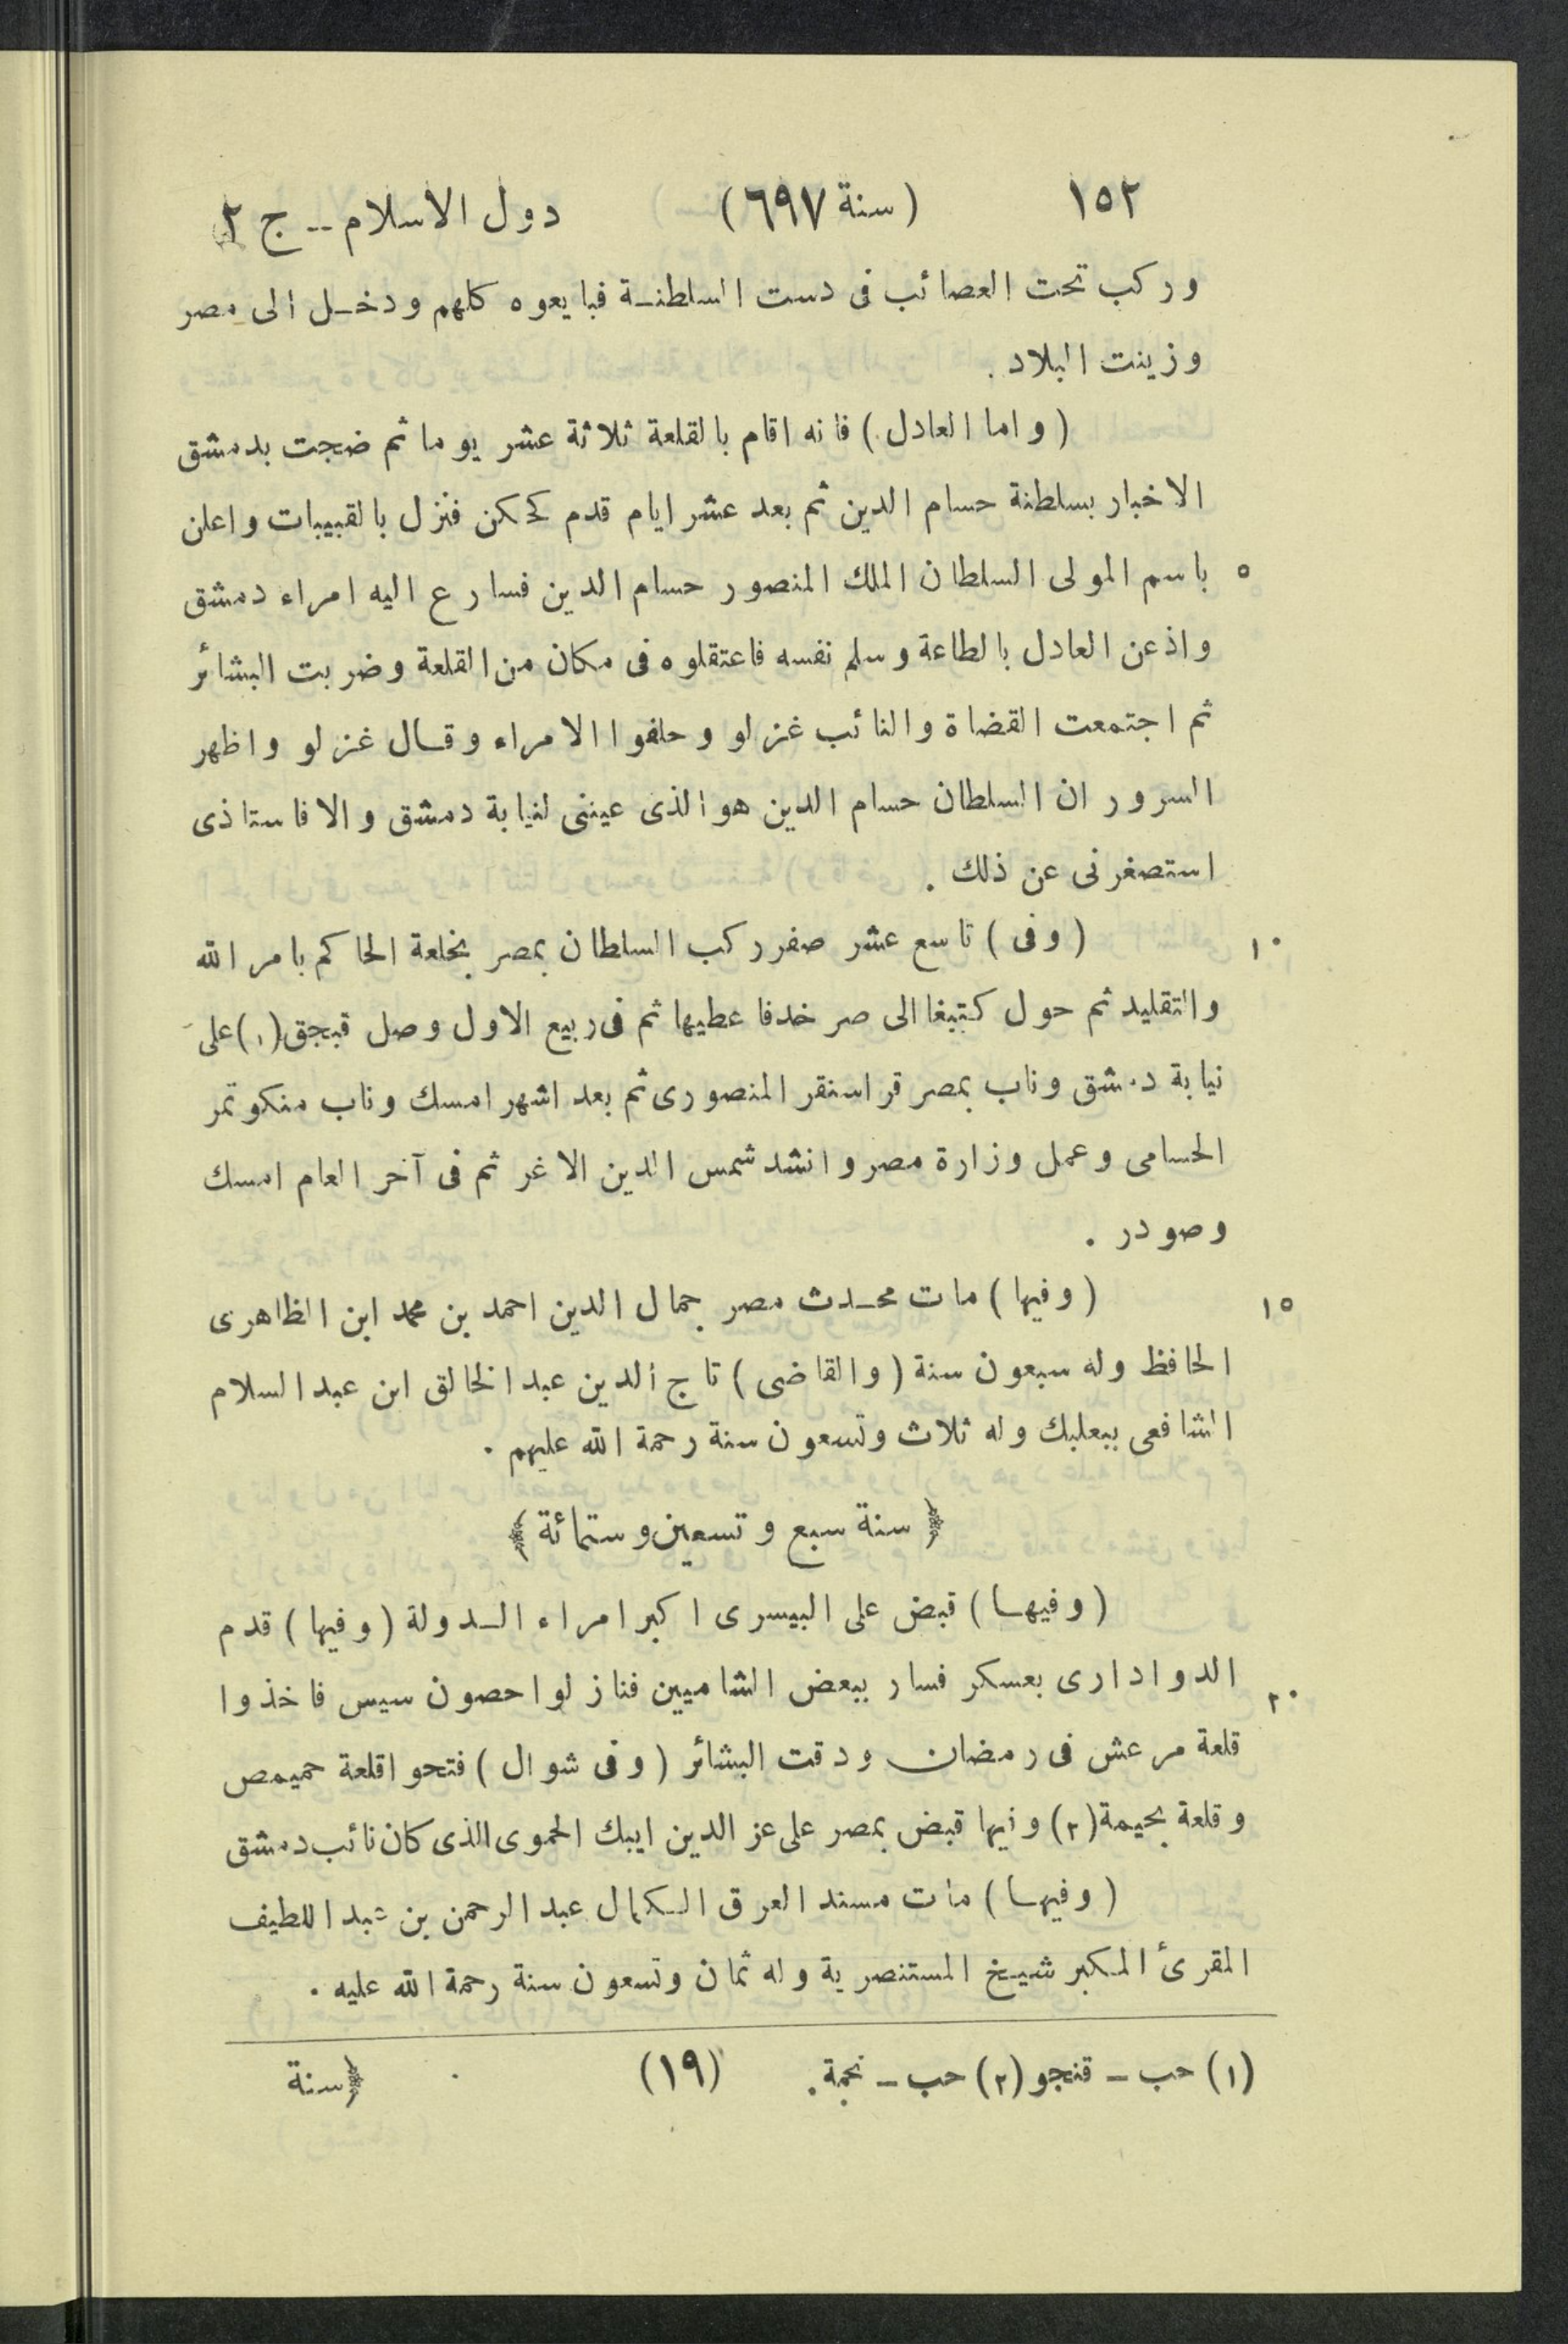 ١٥٢ (سنة ٦٩٧) دول الاسلام -- ج ٢
وركب تحت العصائب فى دست السلطنة فبايعوه كلهم ودخل الى مصر
وزينت البلاد .
(واما العادل) فانه اقام بالقلعة ثلاثة عشر يوما ثم ضجت بدمشق
الاخبار بسلطنة حسام الدين ثم بعد عشر ايام قدم كجكن فنزل بالقبيبات واعلن
٥ باسم المولى السلطان الملك المنصور حسام الدين فسارع اليه امراء دمشق
واذعن العادل بالطاعة وسلم نفسه فاعتقلوه فى مكان من القلعة وضربت البشائر
ثم اجتمعت القضاة والنائب غزلو وحلفوا الامراء وقال غزلو واظهر
السرور ان السلطان حسام الدين هو الذى عيننى لنيابة دمشق والا فاستاذى
استصغرنى عن ذلك .
١٠ (وفى) تاسع عشر صفر ركب السلطان بمصر بخلعة الحاكم بامر الله
والتقليد ثم حول كتبغا الى صرخد فاعطيها ثم فى ربيع الاول وصل قبجق (١) على
نيابة دمشق وناب بمصر قراسنقر المنصورى ثم بعد اشهر امسك وناب منكوتمر
الحسامى وعمل وزارة مصر وانشد شمس الدين الاغر ثم فى آخر العام امسك
وصودر .
١٥ (وفيها) مات محدث مصر جمال الدين احمد بن محمد ابن الظاهرى
الحافظ وله سبعون سنة (والقاضى) تاج الدين عبد الخالق ابن عبد السلام
الشافعى ببعلبك وله ثلاث وتسعون سنة رحمة الله عليهم .
﴿ سنة سبع وتسعين وستمائة ﴾
(وفيها) قبض على البيسرى اكبر امراء الدولة (وفيها) قدم
٢٠ الدوادارى بعسكر فسار ببعض الشاميين فنازلوا حصون سيس فاخذوا
قلعة مرعش فى رمضان ودقت البشائر (وفى شوال) فتحوا قلعة حميمص
وقلعة بحيمة (٢) وفيها قبض بمصر على عز الدين ايبك الحموى الذى كان نائب دمشق
(وفيها) مات مسند العرق الكمال عبد الرحمن بن عبد اللطيف
المقرئ المكبر شيخ المستنصرية وله ثمان وتسعون سنة رحمة الله عليه .
(١) حب - قنجو (٢) حب - نجمة. (١٩) ﴿سنة